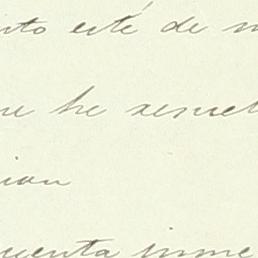 nto esté de
he resuel
cion
cuenta inme